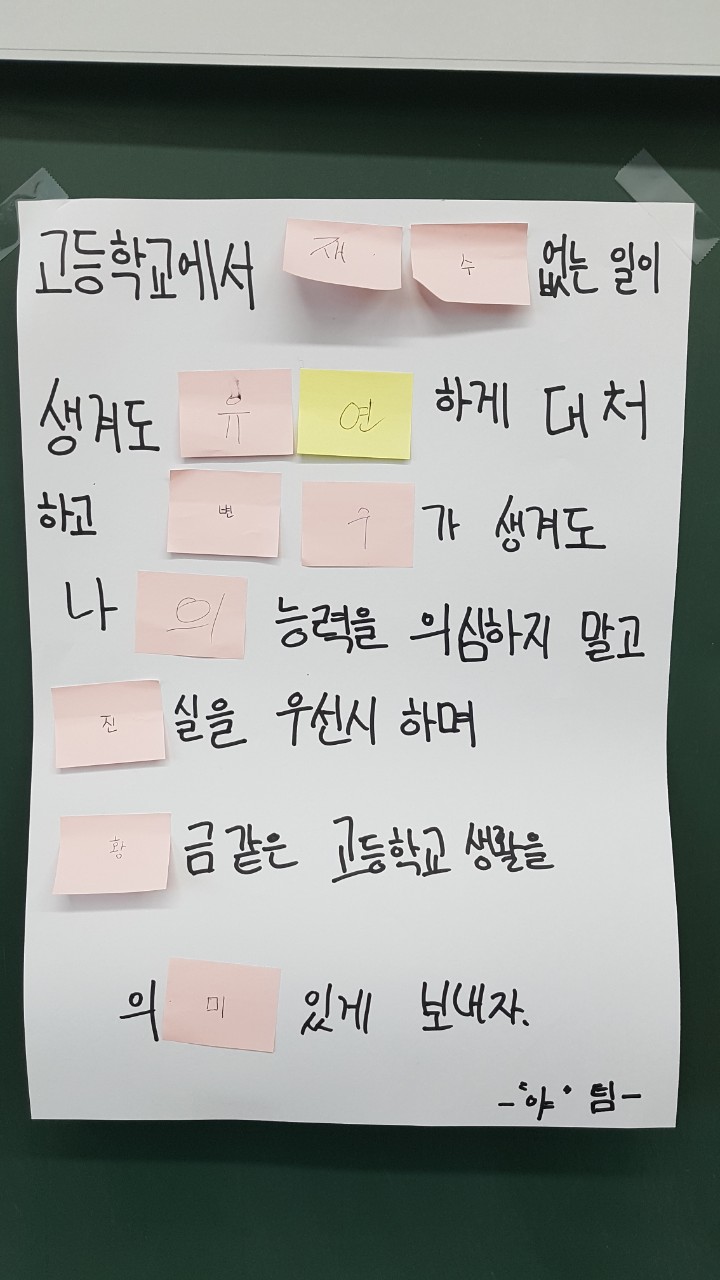 고등학교에서 재 수 없는 일이
생겨도 유 연 하게 대처
하고 변 우 가 생겨도
나 의 능력을 의심하지 말고
진 실을 우선시 하며
황 금 같은 고등학교 생활을
의 미 있게 보내자.
-"야" 팀-